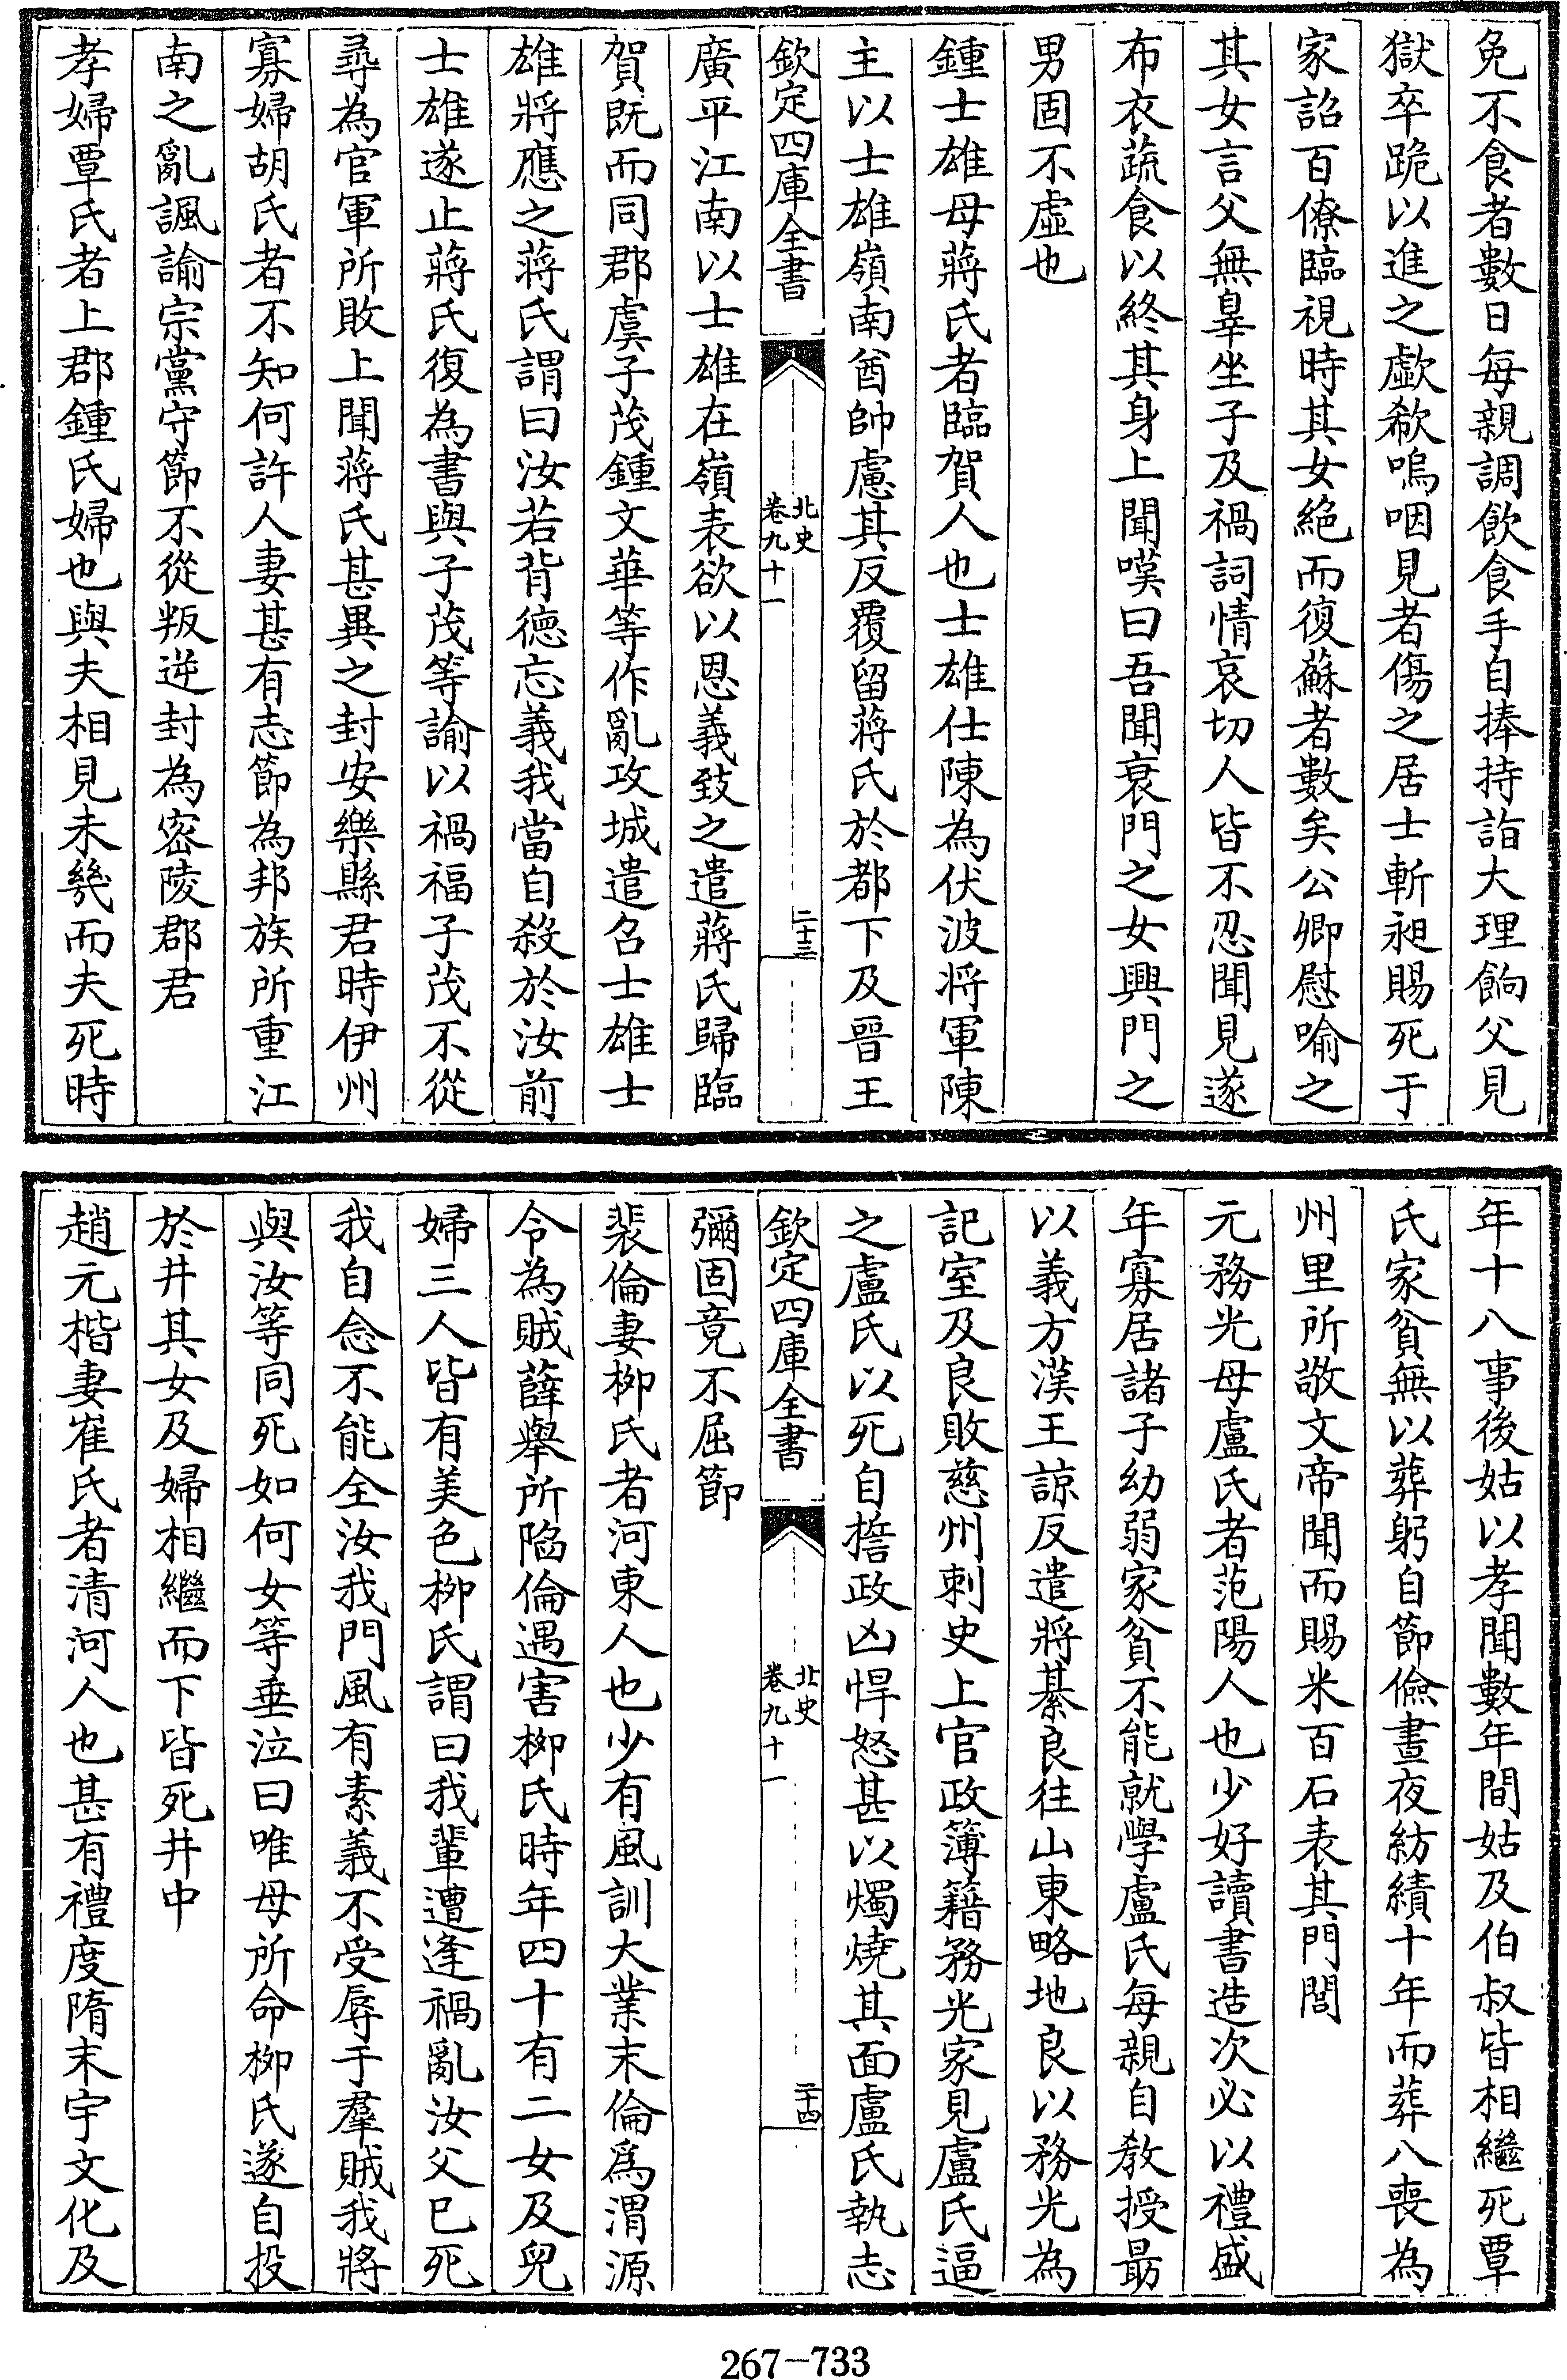 免不食者數日每親調飲食手自捧持詣大理餉父見
獄卒跪以進之歔欷嗚咽見者傷之居士斬昶賜死于
家詔百僚臨視時其女絶而復蘇者數矣公卿慰喻之
其女言父無辠坐子及禍詞情哀切人皆不忍聞見遂
布衣蔬食以終其身上聞嘆曰吾聞衰門之女興門之
男固不虛也
鍾士雄母蔣氏者臨賀人也士雄仕陳為伏波將軍陳
主以士雄嶺南酋帥慮其反覆留蔣氏於都下及晉王
欽定四庫全書
北史
卷九十一
二十三
廣平江南以士雄在嶺表欲以恩義致之遣蔣氏歸臨
賀既而同郡虞子茂鍾文華等作亂攻城遣召士雄士
雄將應之蔣氏謂曰汝若背德忘義我當自殺於汝前
士雄遂止蔣氏復為書與子茂等諭以禍福子茂不從
尋為官軍所敗上聞蔣氏甚異之封安樂縣君時伊州
寡婦胡氏者不知何許人妻甚有志節為邦族所重江
南之亂諷諭宗黨守節不從叛逆封為密陵郡君
孝婦覃氏者上郡鍾氏婦也與夫相見未幾而夫死時
年十八事後姑以孝聞數年間姑及伯叔皆相繼死覃
氏家貧無以葬躬自節儉晝夜紡績十年而葬八喪為
州里所敬文帝聞而賜米百石表其門閭
元務光母盧氏者范陽人也少好讀書造次必以禮盛
年寡居諸子幼弱家貧不能就學盧氏每親自教授勗
以義方漢王諒反遣將綦良往山東略地良以務光為
記室及良敗慈州刺史上官政簿籍務光家見盧氏逼
之盧氏以死自誓政凶悍怒甚以燭燒其面盧氏執志
欽定四庫全書
北史
卷九十一
二十四
彌固竟不屈節
裴倫妻柳氏者河東人也少有風訓大業末倫為渭源
令為賊薛舉所陷倫遇害柳氏時年四十有二女及兒
婦三人皆有美色柳氏謂曰我輩遭逢禍亂汝父已死
我自念不能全汝我門風有素義不受辱于羣賊我將
與汝等同死如何女等垂泣曰唯母所命柳氏遂自投
於井其女及婦相繼而下皆死井中
趙元楷妻崔氏者清河人也甚有禮度隋末宇文化及
267-733